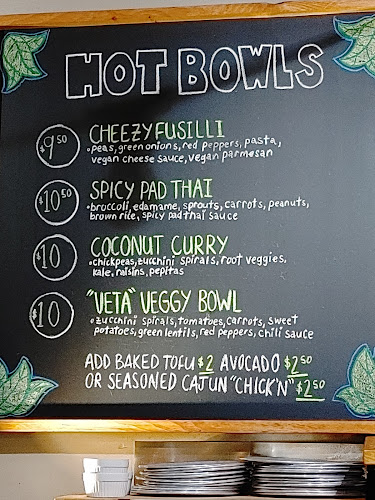 HOT BOWLS
$9.50 CHEEZY FUSILLI
• peas, green onions, red peppers, pasta,
vegan cheese sauce, vegan parmesan
$10.50 SPICY PAD THAI
• broccoli, edamame, sprouts, carrots, peanuts,
brown rice, spicy pad thai sauce
$10 COCONUT CURRY
• chickpeas, zucchini spirals, root veggies,
kale, raisins, pepitas
$10 "VETA" VEGGY BOWL
• zucchini spirals, tomatoes, carrots, sweet
potatoes, green lentils, red peppers, chili sauce
ADD BAKED TOFU $2 AVOCADO $2.50
OR SEASONED CAJUN "CHICK'N" $2.50